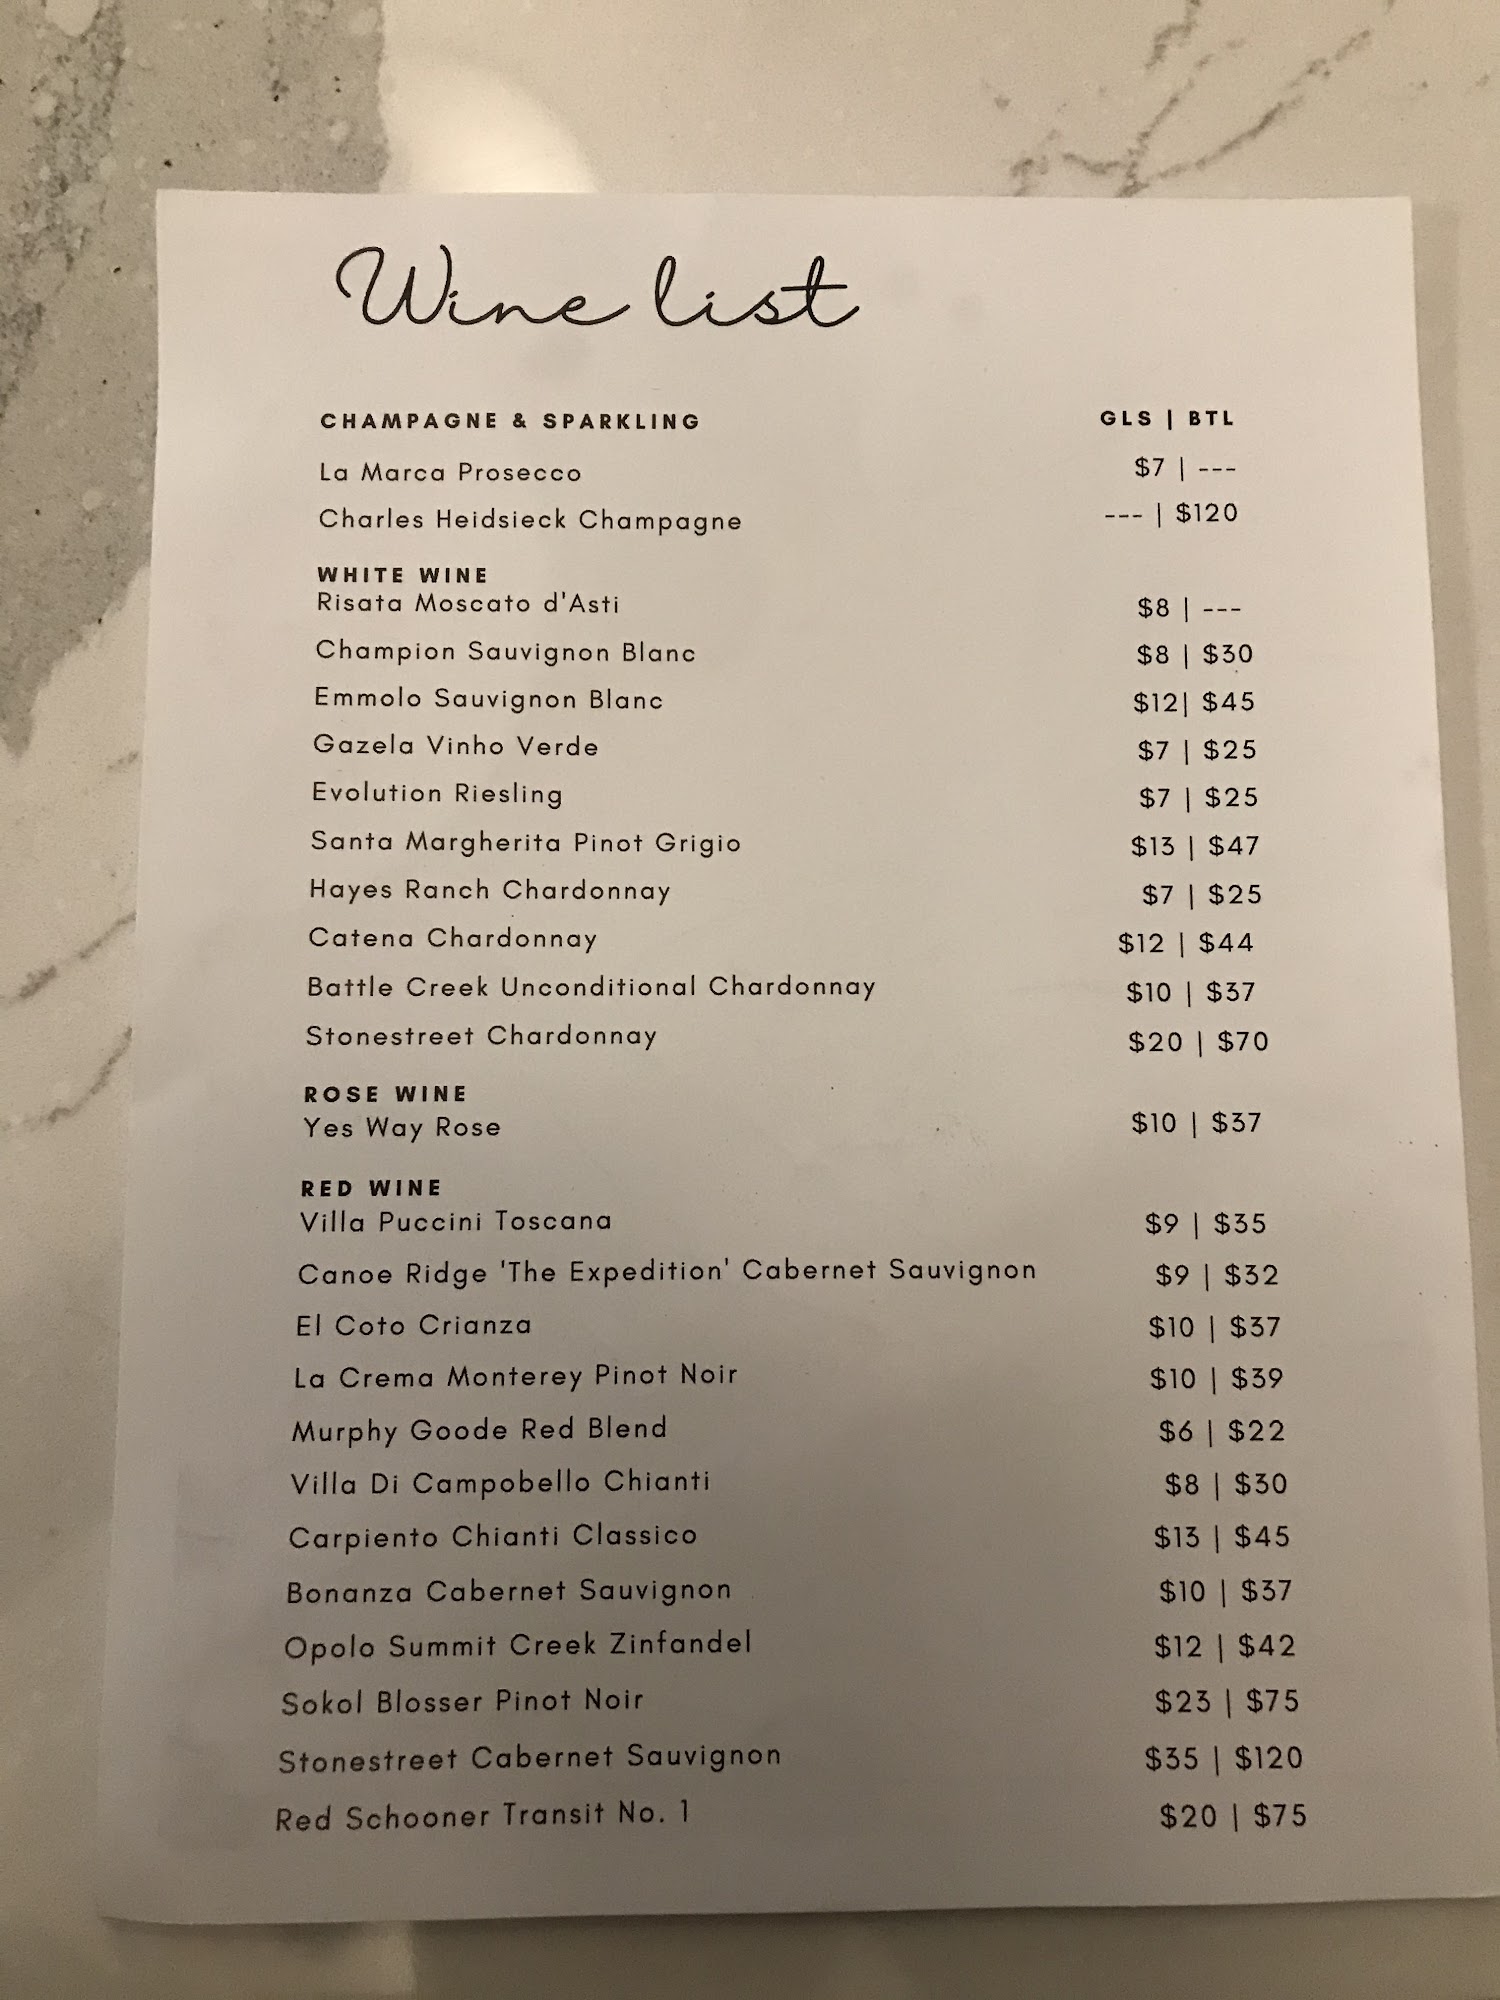 Wine list
CHAMPAGNE & SPARKLING GLS | BTL
La Marca Prosecco $7 | ---
Charles Heidsieck Champagne --- | $120
WHITE WINE
Risata Moscato d'Asti $8 | ---
Champion Sauvignon Blanc $8 | $30
Emmolo Sauvignon Blanc $12| $45
Gazela Vinho Verde $7 | $25
Evolution Riesling $7 | $25
Santa Margherita Pinot Grigio $13 | $47
Hayes Ranch Chardonnay $7 | $25
Catena Chardonnay $12 | $44
Battle Creek Unconditional Chardonnay $10 | $37
Stonestreet Chardonnay $20 | $70
ROSE WINE
Yes Way Rose $10 | $37
RED WINE
Villa Puccini Toscana $9 | $35
Canoe Ridge 'The Expedition' Cabernet Sauvignon $9 | $32
El Coto Crianza $10 | $37
La Crema Monterey Pinot Noir $10 | $39
Murphy Goode Red Blend $6 | $22
Villa Di Campobello Chianti $8 | $30
Carpiento Chianti Classico $13 | $45
Bonanza Cabernet Sauvignon $10 | $37
Opolo Summit Creek Zinfandel $12 | $42
Sokol Blosser Pinot Noir $23 | $75
Stonestreet Cabernet Sauvignon $35 | $120
Red Schooner Transit No. 1 $20 | $75